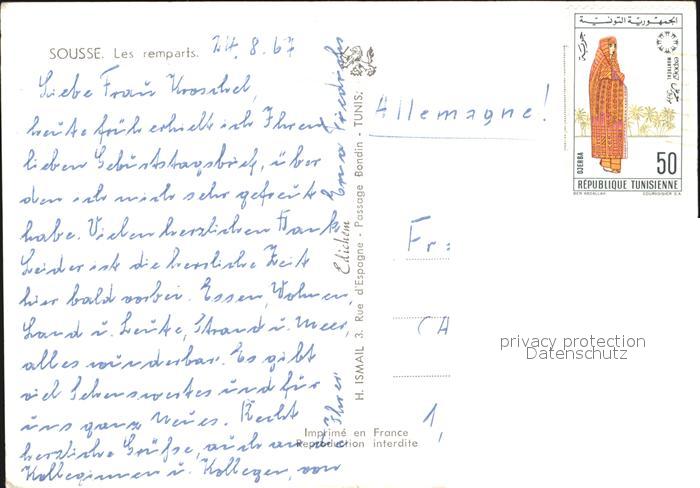 SOUSSE. Les remparts. 24.8.67
Liebe Frau Kroschel,
heute früh erhielt ich Ihren
lieben Geburtstagsbrief, über
den ich mich sehr gefreut
habe. Vielen herzlichen Dank.
Leider ist die herrliche Zeit
hier bald vorbei. Essen, Wohnen,
Land u. Leute, Strand u. Meer,
alles wunderbar. Es gibt
viel Sehenswertes und für
uns ganz Neues. Recht
herzliche Grüße, auch an die
Kolleginnen u. Kollegen, von
Ihrer
Erna
Edichem
H. ISMAIL 3. Rue d'Espagne - Passage Bondin - TUNIS:
Imprimé en France
Reproduction interdite
Allemagne!
Fr:
CH
1,
الجمهورية التونسية
MONTREAL
DJERBA
50
RÉPUBLIQUE TUNISIENNE
BEN ABDALLAH COURVOISIER S.A.
privacy protection
Datenschutz